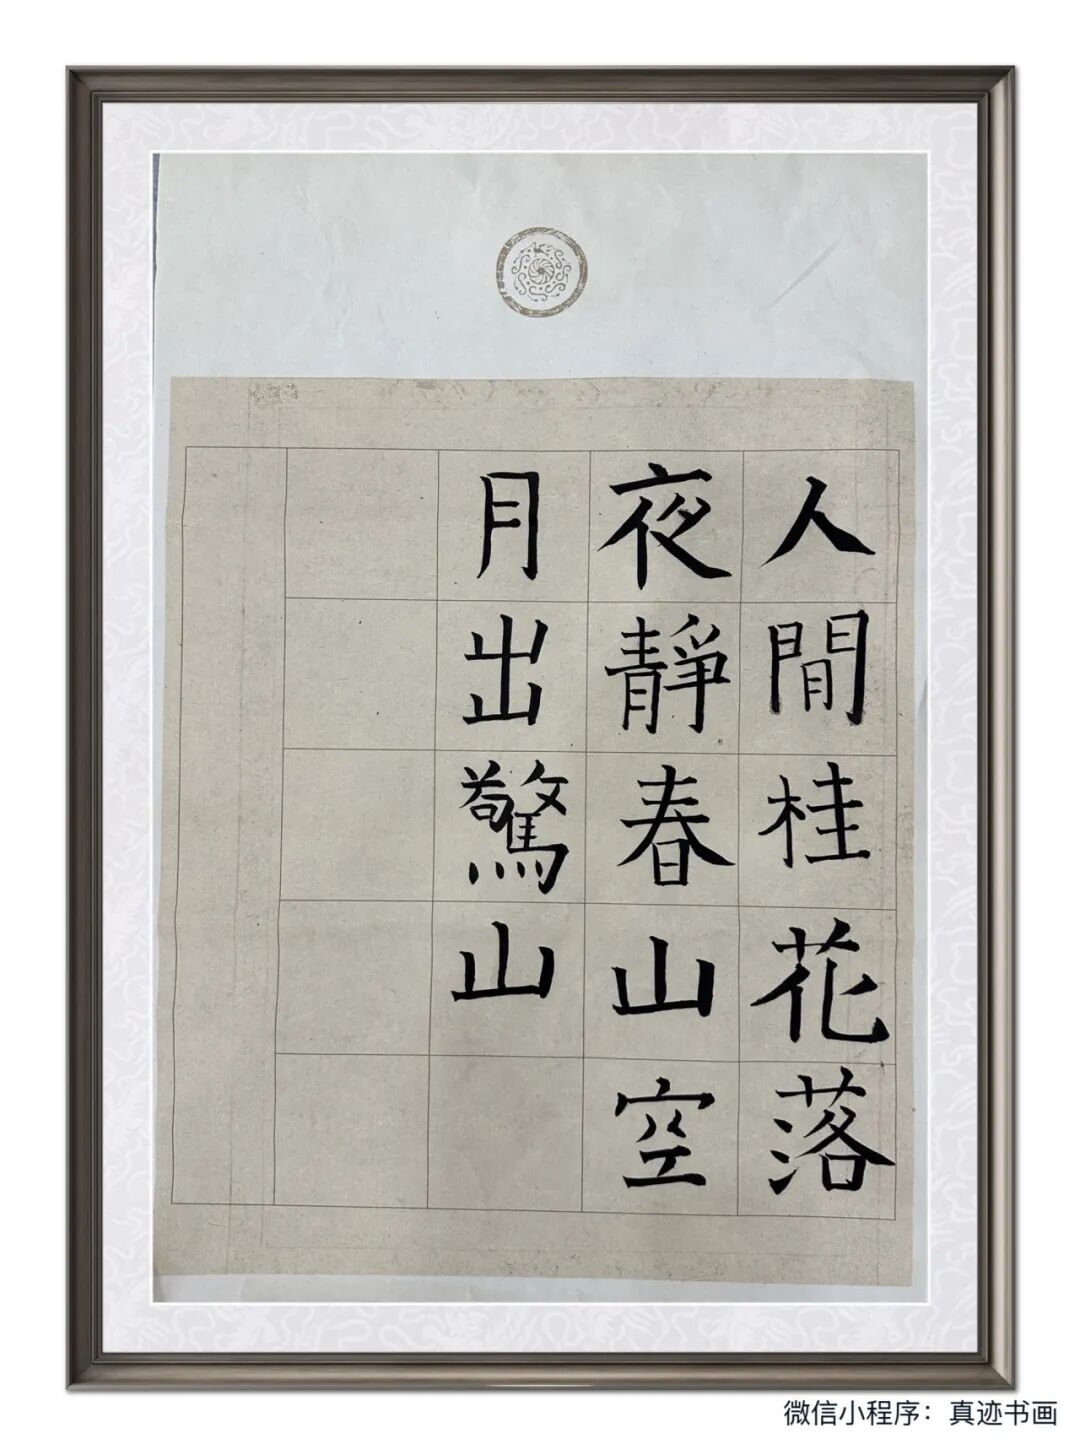 人間桂花落
夜靜春山空
月出驚山
微信小程序：真迹书画